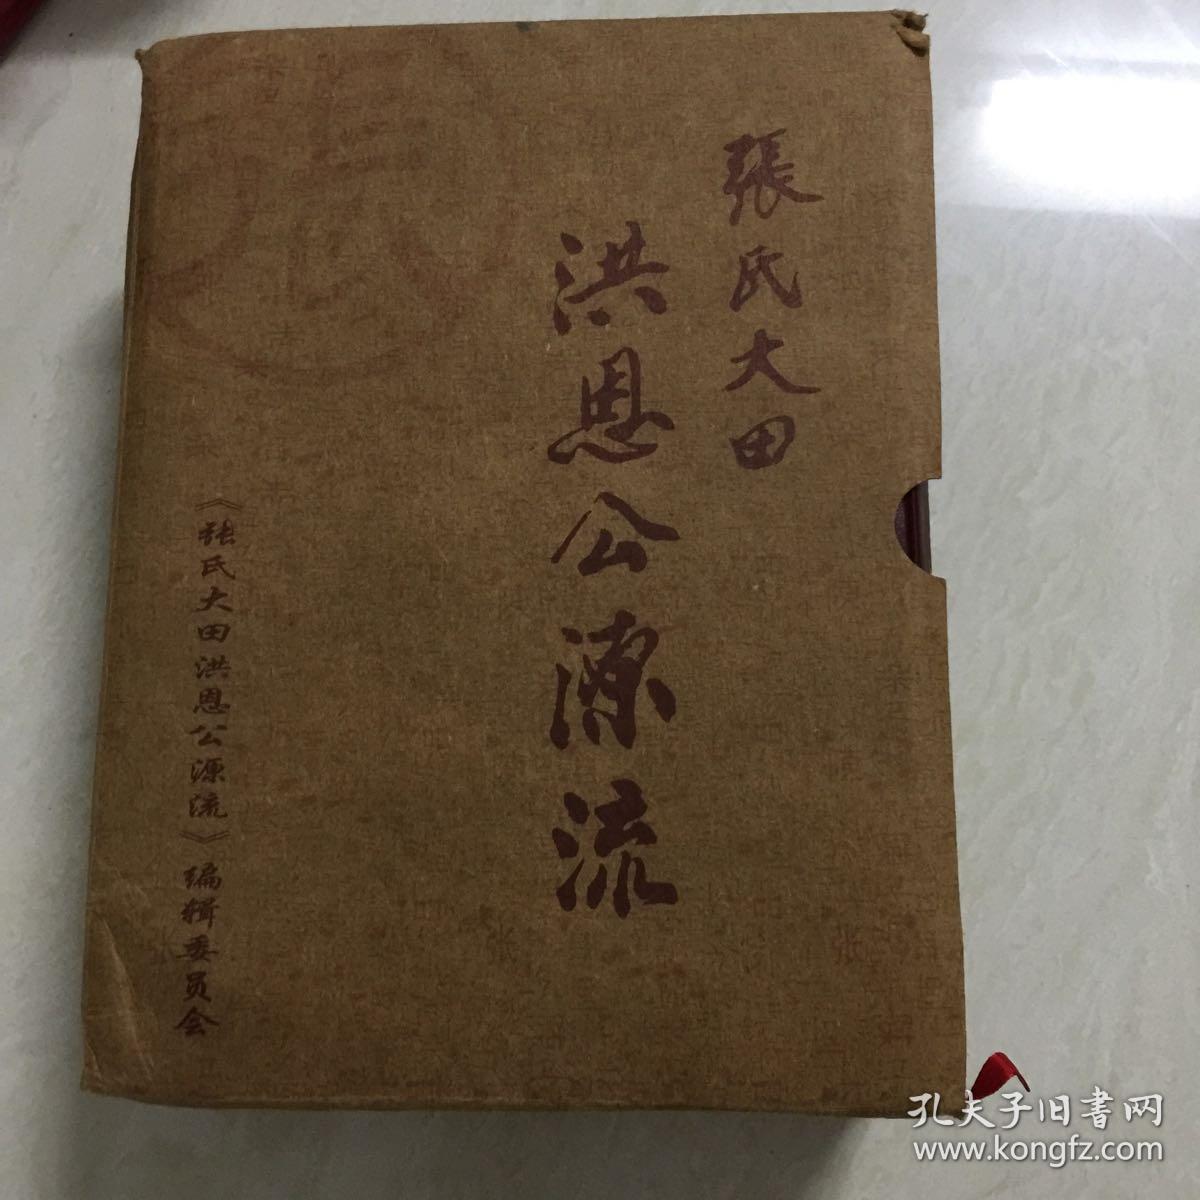 張氏大田
洪恩公源流
《張氏大田洪恩公源流》编辑委员会
张
张
张
孔夫子旧書网
www.kongfz.com